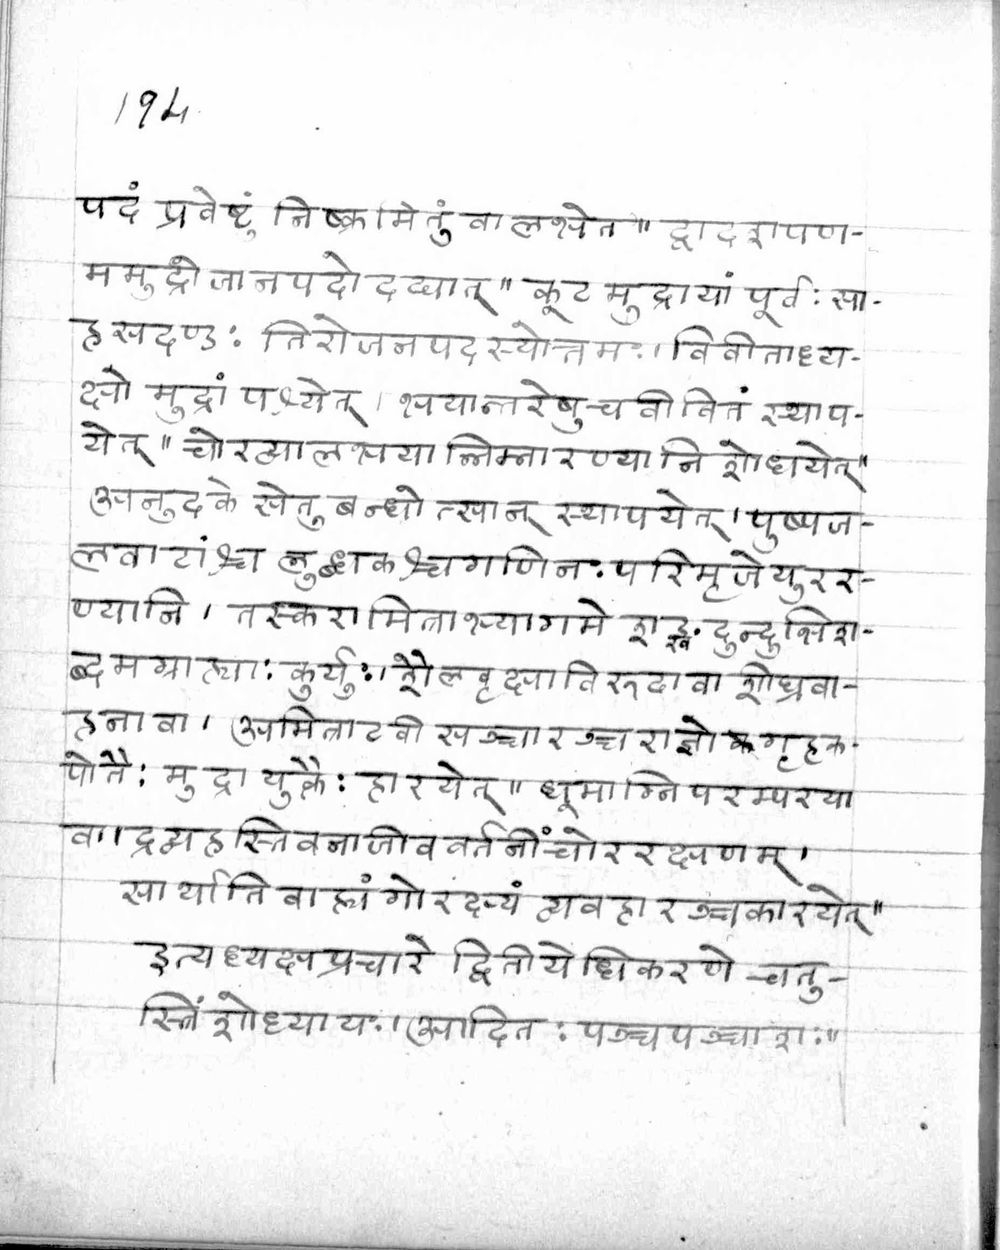 194
पदं प्रवेष्टुं निष्क्रामितुं वा लभेत॥ द्वादशपण-
ममुद्रो जानपदो दद्यात्॥ कूट मुद्रायां पूर्वः सा-
हसदण्डः तिरोजनपदस्योत्तमः। विवीताध्य-
क्षो मुद्रां पश्येत्। भयान्तरेषु च वीवितं स्थाप-
येत्॥ चोरव्यालभयान्निम्नारण्यानि शोधयेत्॥
अनुदके सेतुबन्धोत्सान् स्थापयेत्। पुष्पज-
लवाटांश्च लुब्धकश्चगणिनः परिमृजेयुरर-
ण्यानि। तस्करामित्राभ्यागमे शङ्ख दुन्दुभिश-
ब्दमग्राह्याः कुर्युः। शैलवृक्षातिरूढा वा शीघ्रवा-
हना वा। अमित्राटवी सञ्चारञ्च राज्ञो गृहक-
पोतैः मुद्रा युक्तैः हारयेत्॥ धूमाग्निपरम्परया
वा॥ द्रव्यहस्तिवनाजीव वर्तनीं चोररक्षणम्।
सार्थातिवाह्यं गोरक्ष्यं व्यवहारञ्च कारयेत्॥
इत्यध्यक्षप्रचारे द्वितीयेधिकरणे चतु-
स्त्रिंशोध्यायः। आदितः पञ्चपञ्चाशः॥